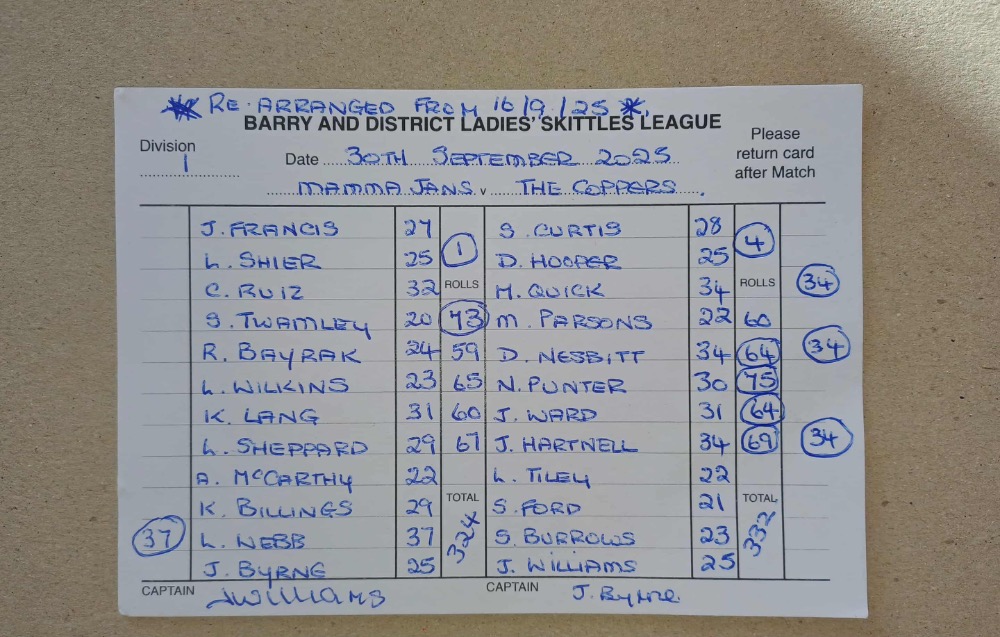 * RE ARRANGED FROM 16/9/25 *
BARRY AND DISTRICT LADIES' SKITTLES LEAGUE
Please return card after Match
Division 1
Date 30TH SEPTEMBER 2025
MAMMA JANS v THE COPPERS
J. FRANCIS 27 S. CURTIS 28
1 4
L. SHIER 25 D. HOOPER 25
ROLLS ROLLS
C. RUIZ 32 M. QUICK 34 34
S. TWAMLEY 20 73 M. PARSONS 22 60
R. BAYRAK 24 59 D. NESBITT 34 64 34
L. WILKINS 23 65 N. PUNTER 30 75
K. LANG 31 60 J. WARD 31 64
L. SHEPPARD 29 67 J. HARTNELL 34 69 34
A. McCARTHY 22 L. TILEY 22
TOTAL TOTAL
K. BILLINGS 29 S. FORD 21
324 332
37 L. WEBB 37 S. BURROWS 23
J. BYRNE 25 J. WILLIAMS 25
CAPTAIN JWilliams CAPTAIN J. Byrne